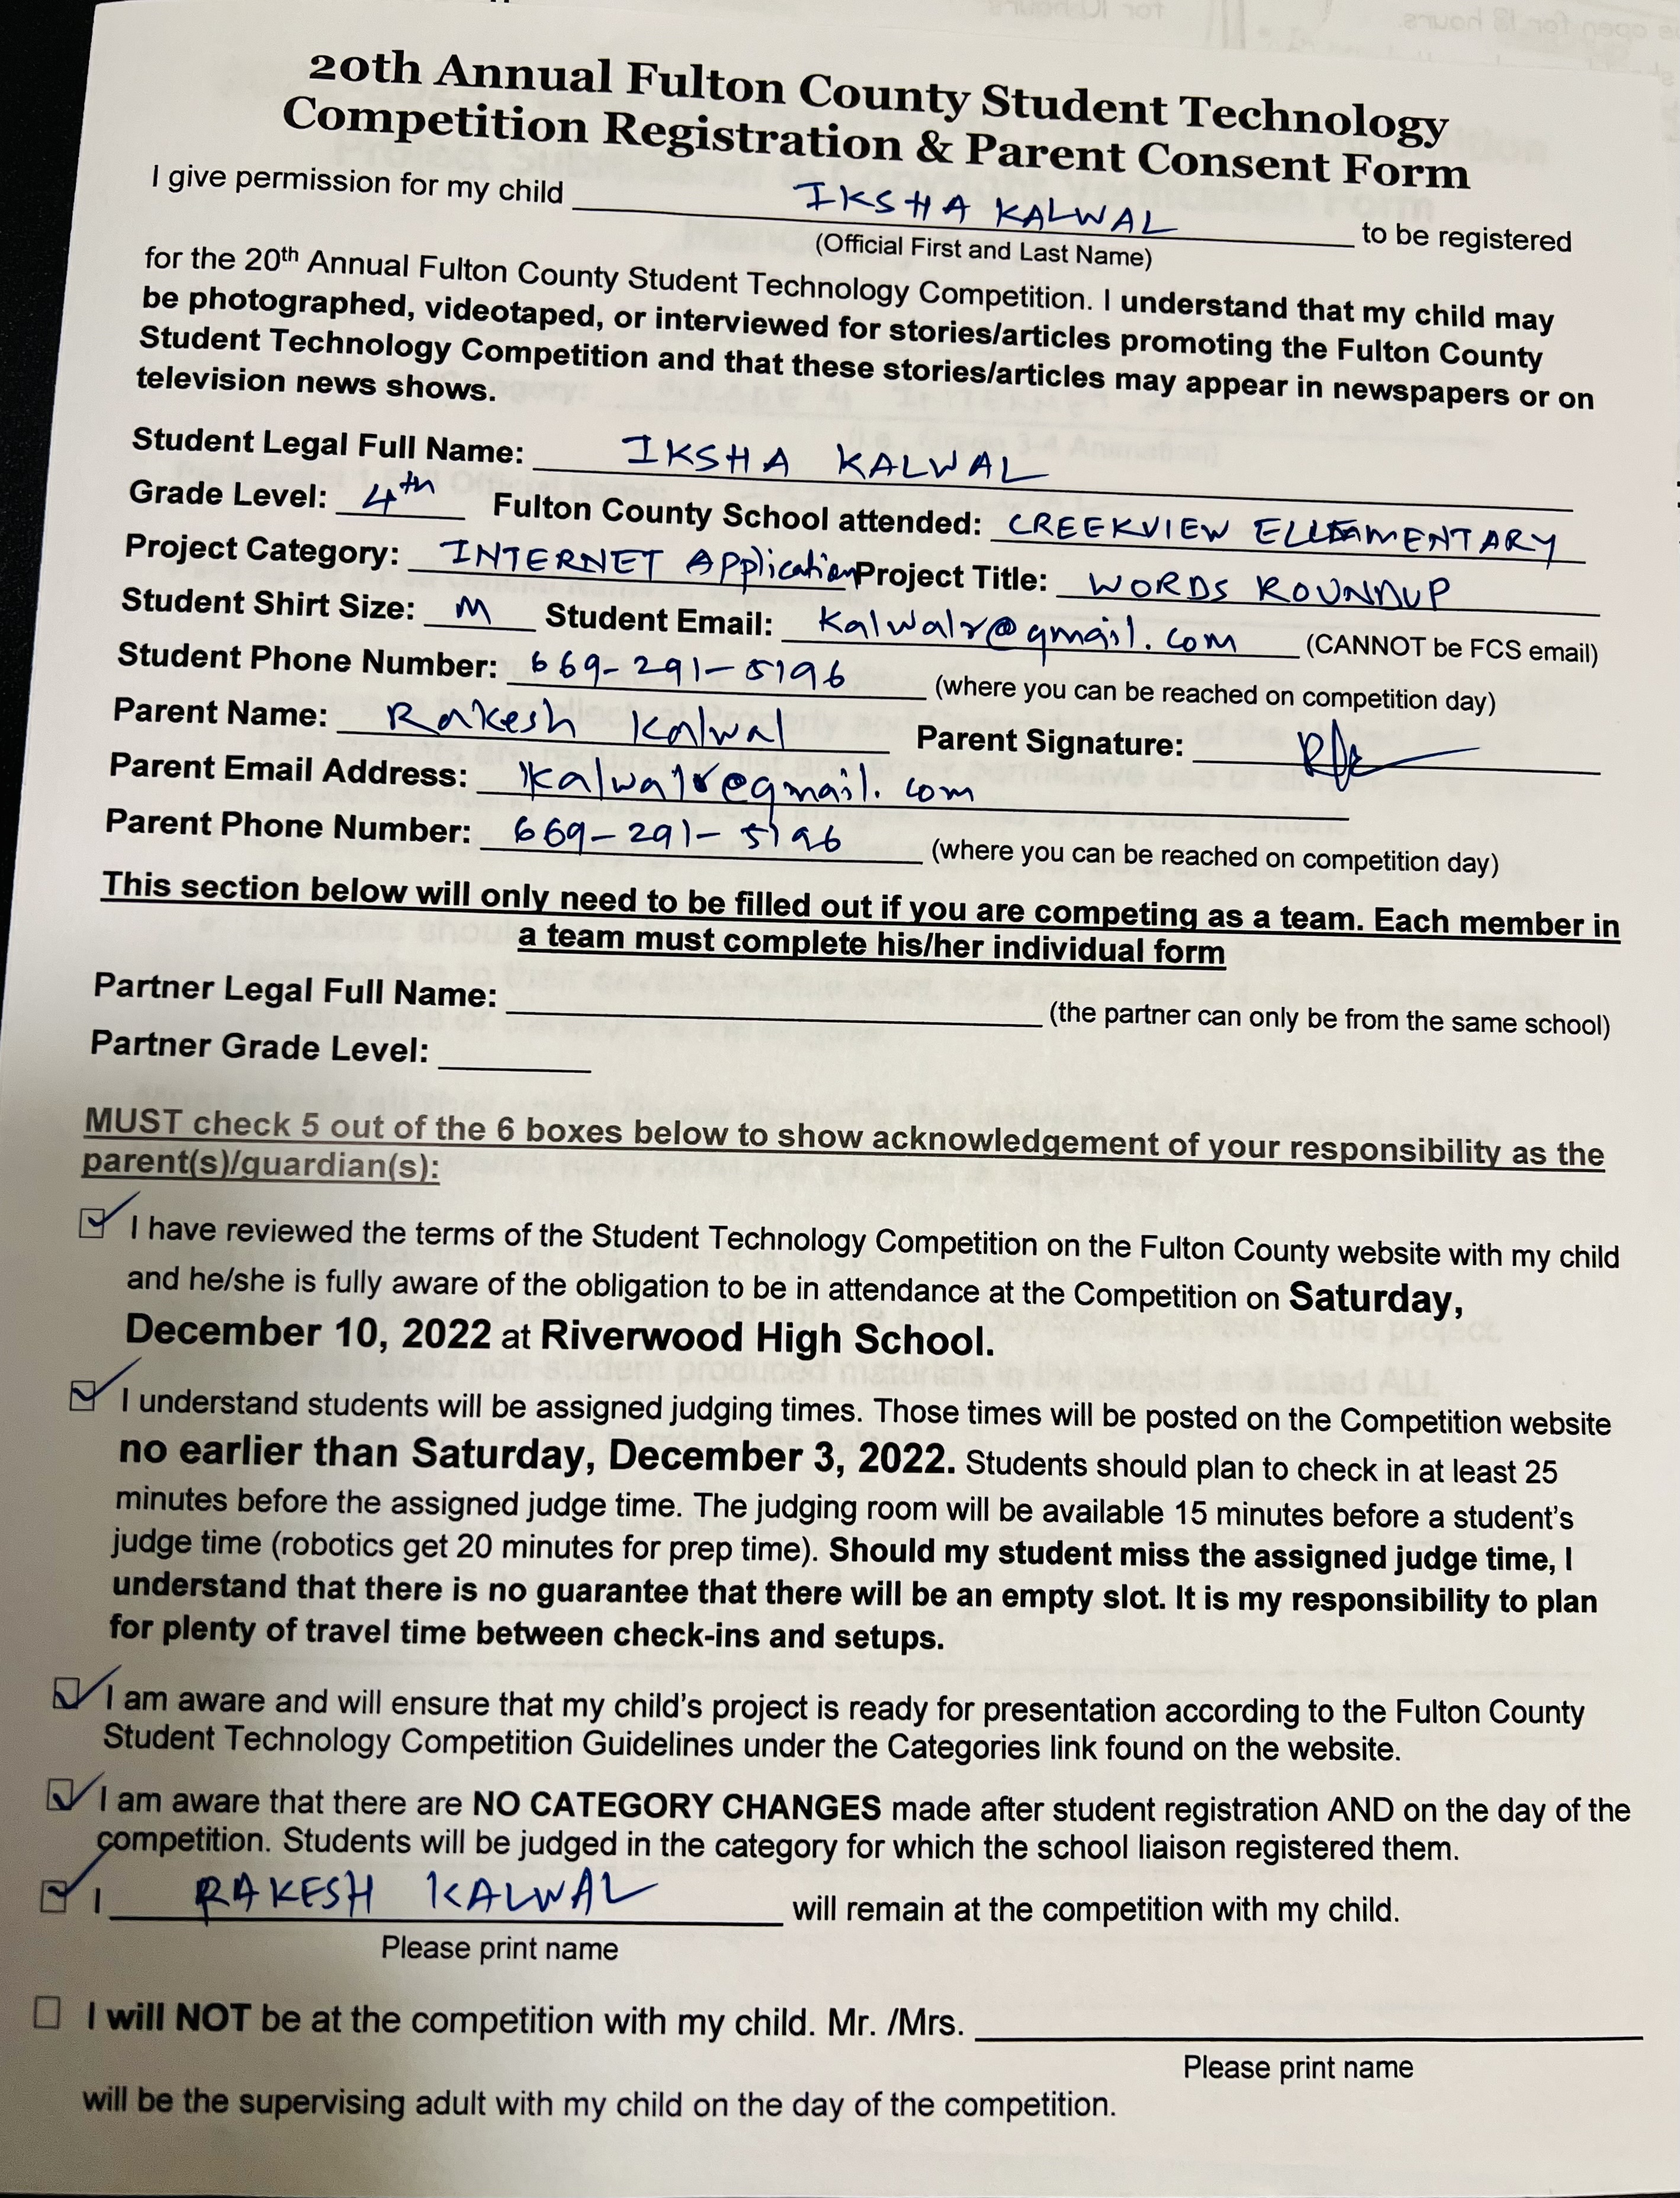 20th Annual Fulton County Student Technology
Competition Registration & Parent Consent Form
I give permission for my child IKSHA KALWAL to be registered
(Official First and Last Name)
for the 20th Annual Fulton County Student Technology Competition. I understand that my child may
be photographed, videotaped, or interviewed for stories/articles promoting the Fulton County
Student Technology Competition and that these stories/articles may appear in newspapers or on
television news shows.
Student Legal Full Name: IKSHA KALWAL
Grade Level: 4th Fulton County School attended: CREEKVIEW ELLEMENTARY
Project Category: INTERNET Application Project Title: WORDS ROUNDUP
Student Shirt Size: M Student Email: kalwalr@gmail.com (CANNOT be FCS email)
Student Phone Number: 669-291-5196 (where you can be reached on competition day)
Parent Name: Rakesh Kalwal Parent Signature:
Parent Email Address: kalwalr@gmail.com
Parent Phone Number: 669-291-5196 (where you can be reached on competition day)
This section below will only need to be filled out if you are competing as a team. Each member in
a team must complete his/her individual form
Partner Legal Full Name: (the partner can only be from the same school)
Partner Grade Level:
MUST check 5 out of the 6 boxes below to show acknowledgement of your responsibility as the
parent(s)/guardian(s):
I have reviewed the terms of the Student Technology Competition on the Fulton County website with my child
and he/she is fully aware of the obligation to be in attendance at the Competition on Saturday,
December 10, 2022 at Riverwood High School.
I understand students will be assigned judging times. Those times will be posted on the Competition website
no earlier than Saturday, December 3, 2022. Students should plan to check in at least 25
minutes before the assigned judge time. The judging room will be available 15 minutes before a student's
judge time (robotics get 20 minutes for prep time). Should my student miss the assigned judge time, I
understand that there is no guarantee that there will be an empty slot. It is my responsibility to plan
for plenty of travel time between check-ins and setups.
I am aware and will ensure that my child's project is ready for presentation according to the Fulton County
Student Technology Competition Guidelines under the Categories link found on the website.
I am aware that there are NO CATEGORY CHANGES made after student registration AND on the day of the
competition. Students will be judged in the category for which the school liaison registered them.
I RAKESH KALWAL will remain at the competition with my child.
Please print name
I will NOT be at the competition with my child. Mr. /Mrs.
Please print name
will be the supervising adult with my child on the day of the competition.